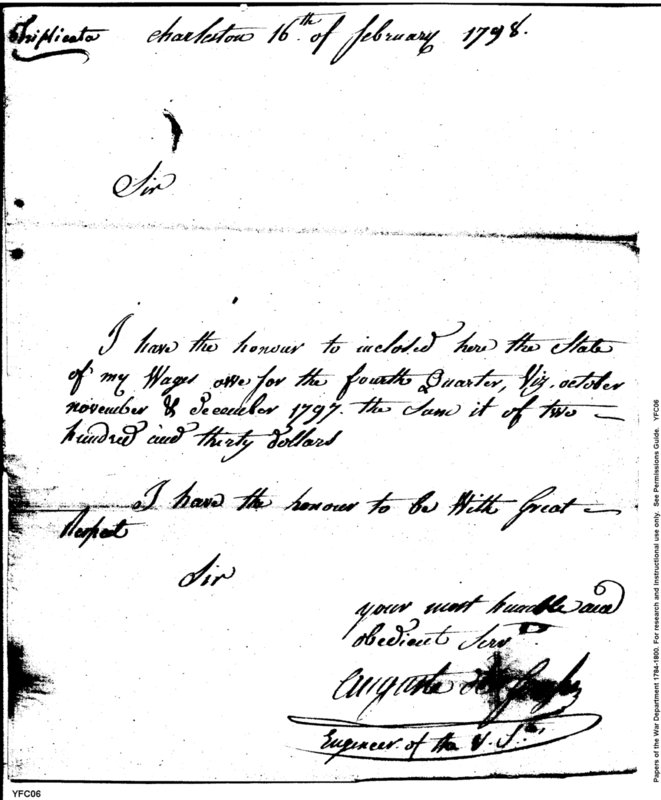 Triplicata Charleston 16th of february 1798.
Sir
I have the honour to inclosed here the State
of my Wages owe for the fourth Quarter, Viz. october
november & december 1797. the Sum it of two
hundred and thirty dollars
I have the honour to be With Great
Respect
Sir
your most humble and
obedient Servt
Engineer of the U. Stes
YFC06
Papers of the War Department 1784-1800. For research and Instructional use only. See Permissions Guide. YFC06